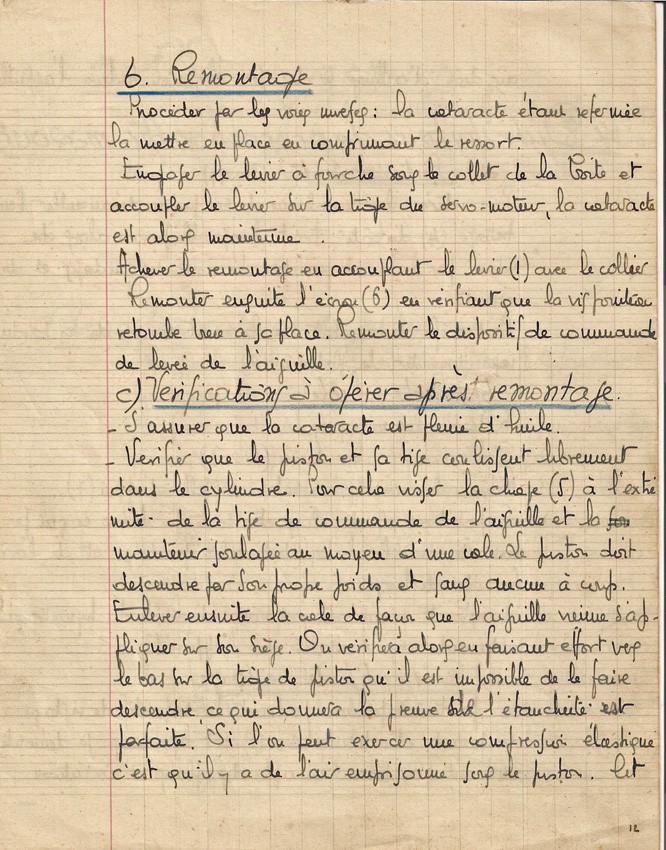 6. Remontage
Procéder par les voies inverses : la cataracte étant refermée
la mettre en place en comprimant le ressort.
Engager le levier à fourche sous le collet de la boite et
accoupler le levier sur la tige du servo-moteur, la cataracte
est alors maintenue .
Achever le remontage en accouplant le levier (1) avec le collier
Remonter ensuite l'écrou (6) en vérifiant que la vis pointeau
retombe bien à sa place. Remonter le dispositif de commande
de levée de l'aiguille.
c) Verifications à opérer après remontage.
- S'assurer que la cataracte est pleine d'huile.
- Verifier que le piston et sa tige coulissent librement
dans le cylindre. Pour cela visser la chape (5) à l'extré
mité de la tige de commande de l'aiguille et la
maintenir soulagée au moyen d'une cale. Le piston doit
descendre par son propre poids et sans aucun à coup.
Enlever ensuite la cale de façon que l'aiguille vienne s'ap-
pliquer sur son siège. On vérifiera alors en faisant effort vers
le bas sur la tige de piston qu'il est impossible de le faire
descendre, ce qui donnera la preuve l'étancheité est
parfaite. Si l'on peut exercer une compression élastique
c'est qu'il y a de l'air emprisonné sous le piston. Cet
12